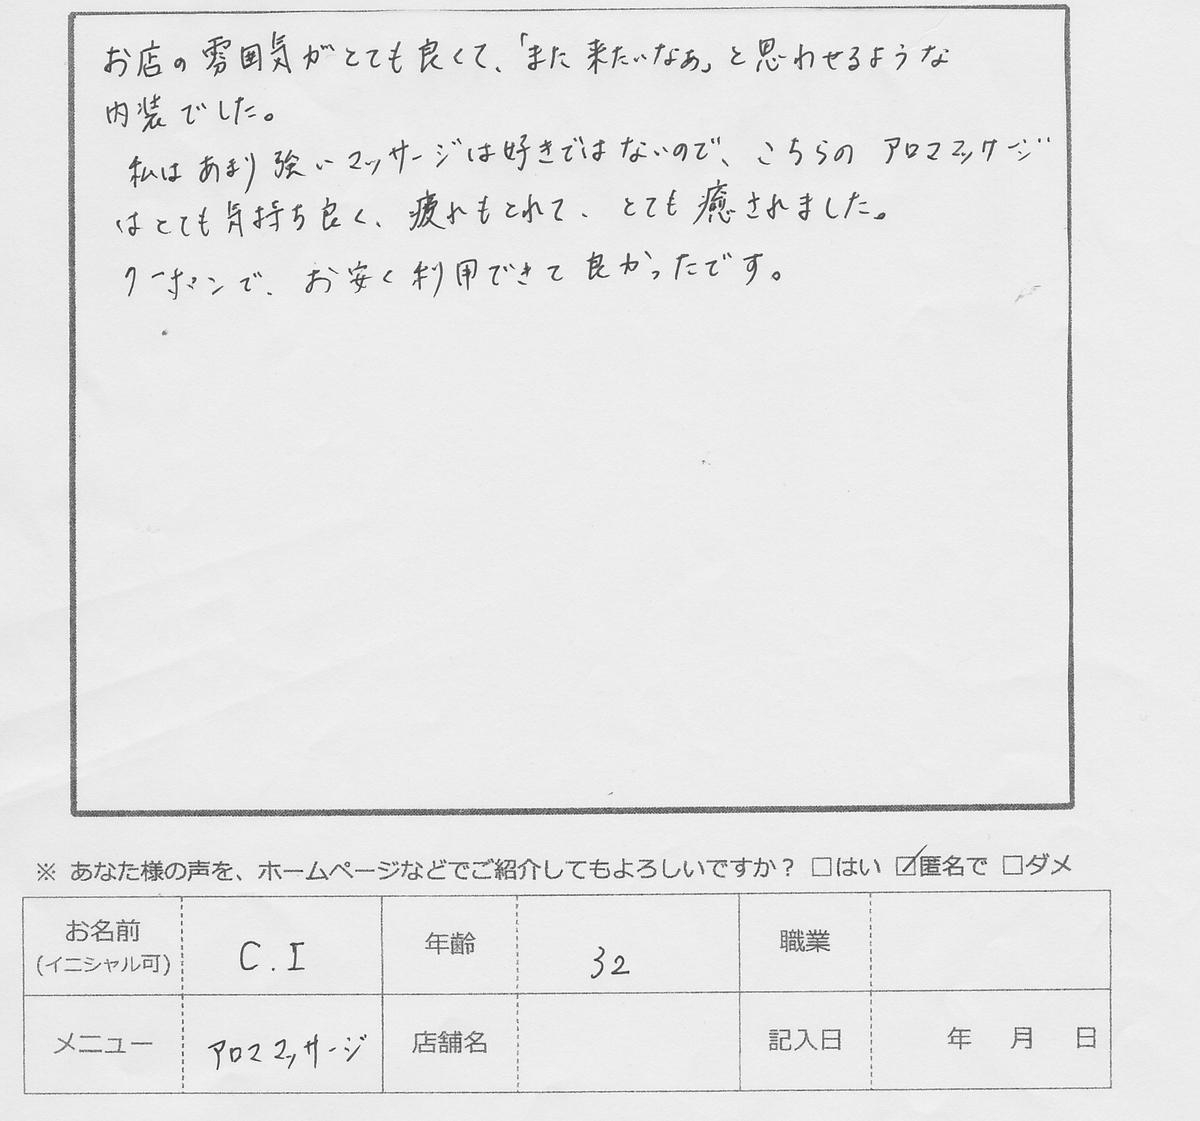 お店の雰囲気がとても良くて、「また来たいなぁ」と思わせるような
内装でした。
私はあまり強いマッサージは好きではないので、こちらのアロママッサージ
はとても気持ち良く、疲れもとれて、とても癒されました。
クーポンで、お安く利用できて良かったです。
※ あなた様の声を、ホームページなどでご紹介してもよろしいですか？ □はい ☑匿名で □ダメ
お名前 (イニシャル可) C.I 年齢 32 職業
メニュー アロママッサージ 店舗名 記入日 年 月 日